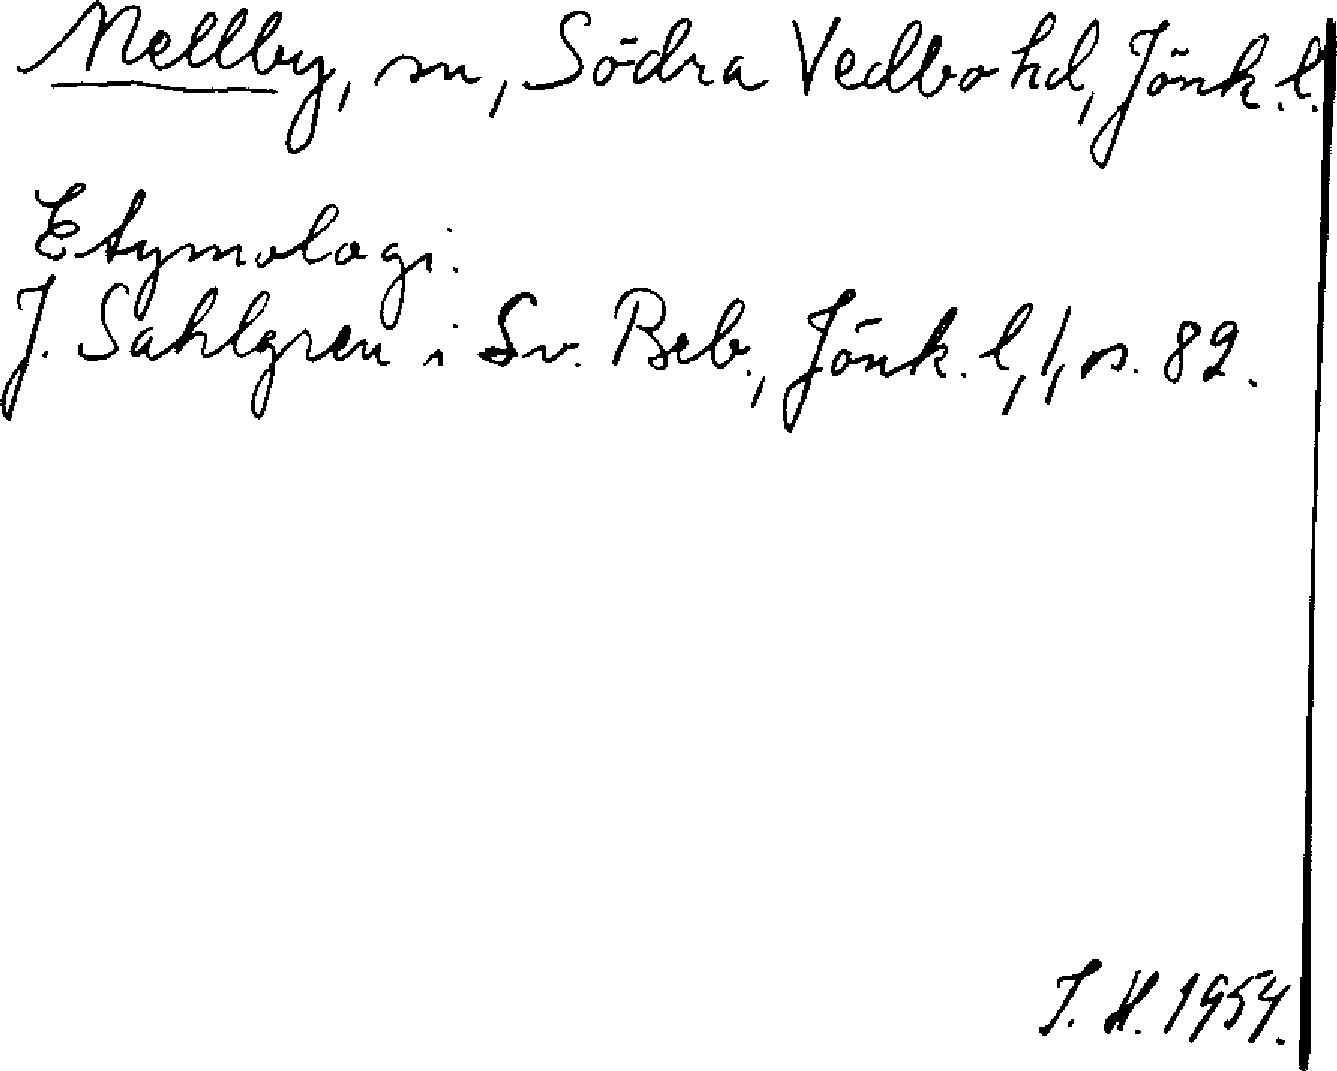 Mellby, sn, Södra Vedbo hd, Jönk. l.
Etymologi.
J. Sahlgren i Sv. Beb., Jönk. l, 1, s. 82.
I. H. 1954.